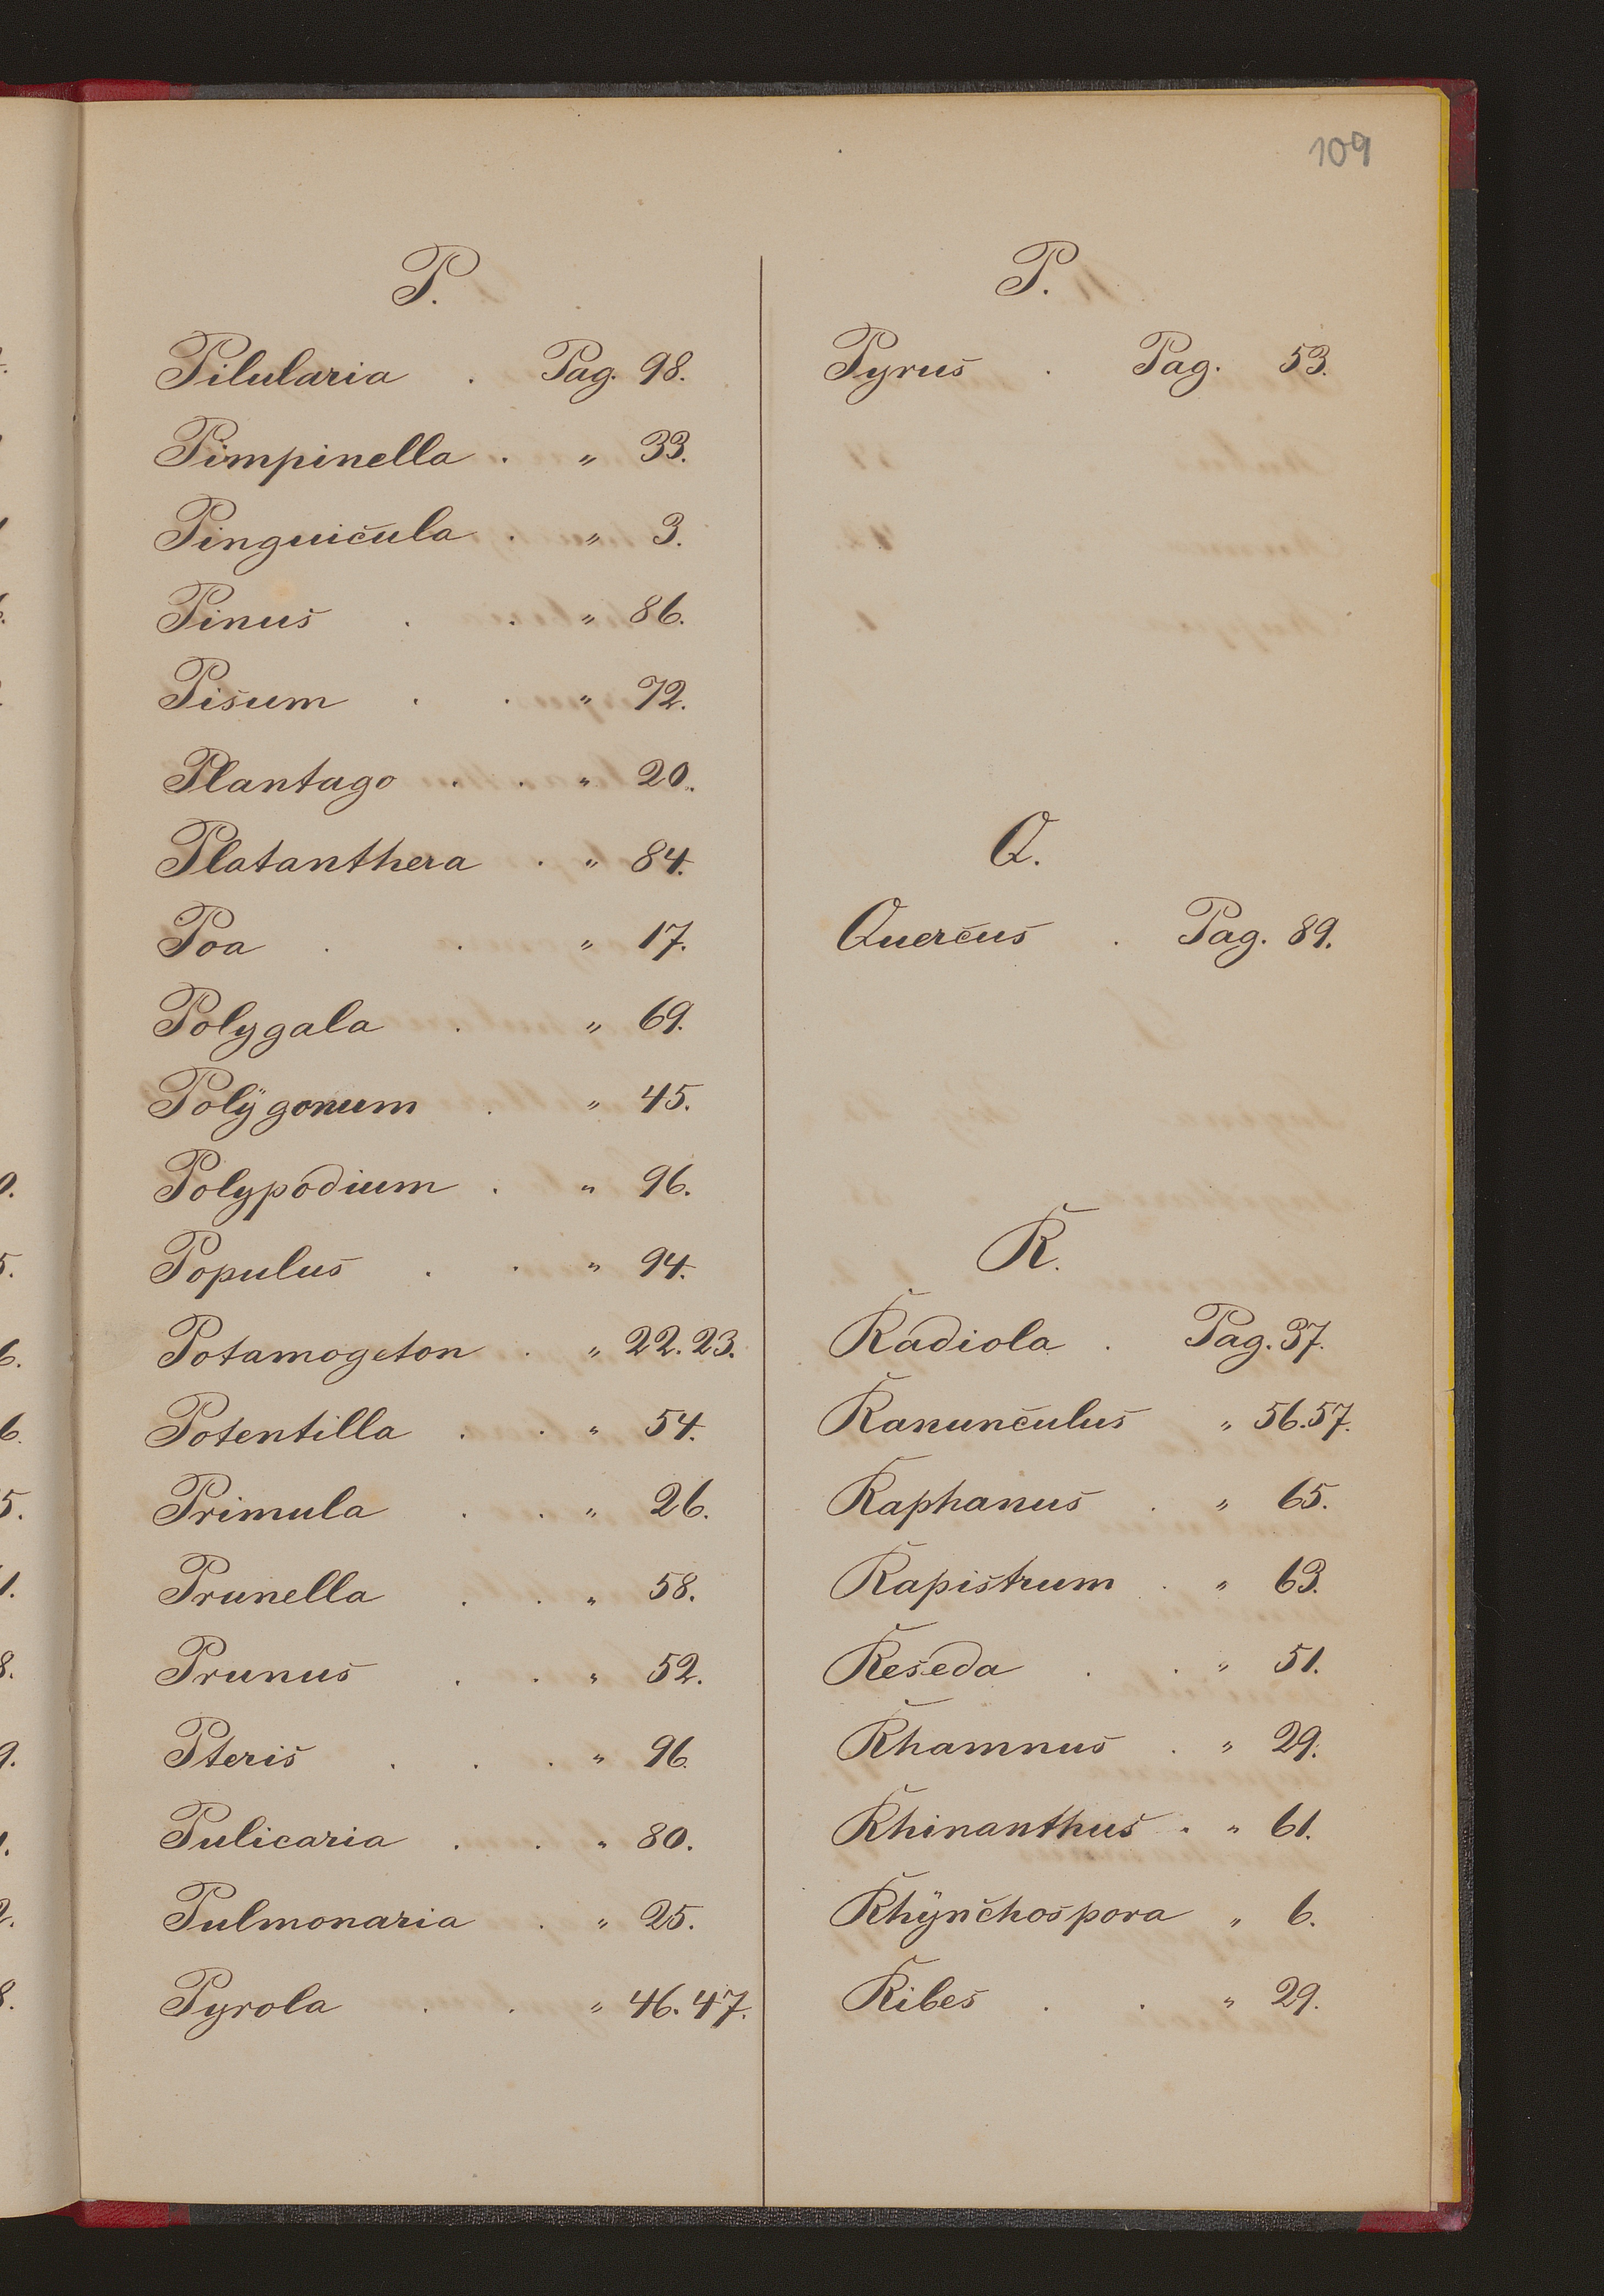 109
P.
Pilularia . Pag. 98.
Pimpinella . „ 33.
Pinguicula . „ 3.
Pinus . . „ 86.
Pisum . . „ 72.
Plantago . . „ 20.
Platanthera . „ 84.
Poa . . „ 17.
Polygala . „ 69.
Polÿgonum . „ 45.
Polypodium . „ 96.
Populus . . „ 94.
Potamogeton . „ 22. 23.
Potentilla . . „ 54.
Primula . . „ 26.
Prunella . . „ 58.
Prunus . . „ 52.
Pteris . . . „ 96
Pulicaria . . „ 80.
Pulmonaria . „ 25.
Pyrola . . „ 46. 47.
P.
Pyrus . Pag. 53.
Q.
Quercus . Pag. 89.
R.
Radiola . Pag. 37.
Ranunculus „ 56. 57.
Raphanus . „ 65.
Rapistrum . „ 63.
Reseda . . „ 51.
Rhamnus . „ 29.
Rhinanthus . „ 61.
Rhÿnchospora „ 6.
Ribes . . „ 29.